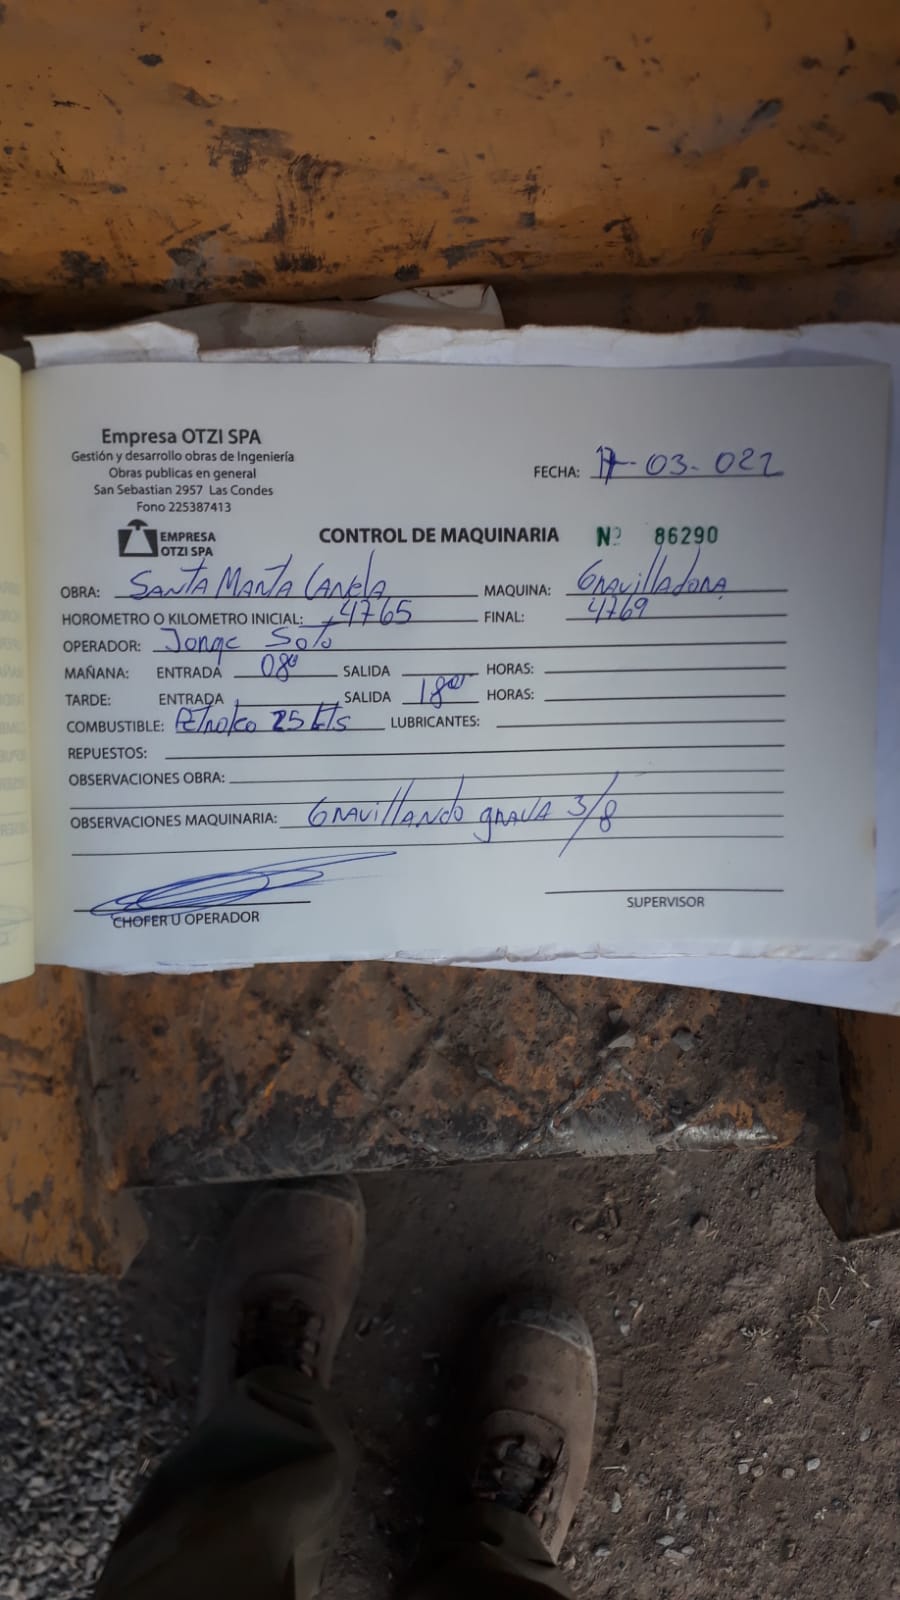 Empresa OTZI SPA
Gestión y desarrollo obras de Ingeniería
Obras publicas en general
San Sebastian 2957 Las Condes
Fono 225387413
FECHA: 17-03-022
EMPRESA
OTZI SPA
CONTROL DE MAQUINARIA Nº 86290
OBRA: Santa Marta Canela MAQUINA: Gravilladora
HOROMETRO O KILOMETRO INICIAL: 4765 FINAL: 4769
OPERADOR: Jorge Soto
MAÑANA: ENTRADA 08⁰⁰ SALIDA HORAS:
TARDE: ENTRADA SALIDA 18⁰⁰ HORAS:
COMBUSTIBLE: Petroleo 25 Lts LUBRICANTES:
REPUESTOS:
OBSERVACIONES OBRA:
OBSERVACIONES MAQUINARIA: Gravillando grava 3/8
CHOFER U OPERADOR
SUPERVISOR